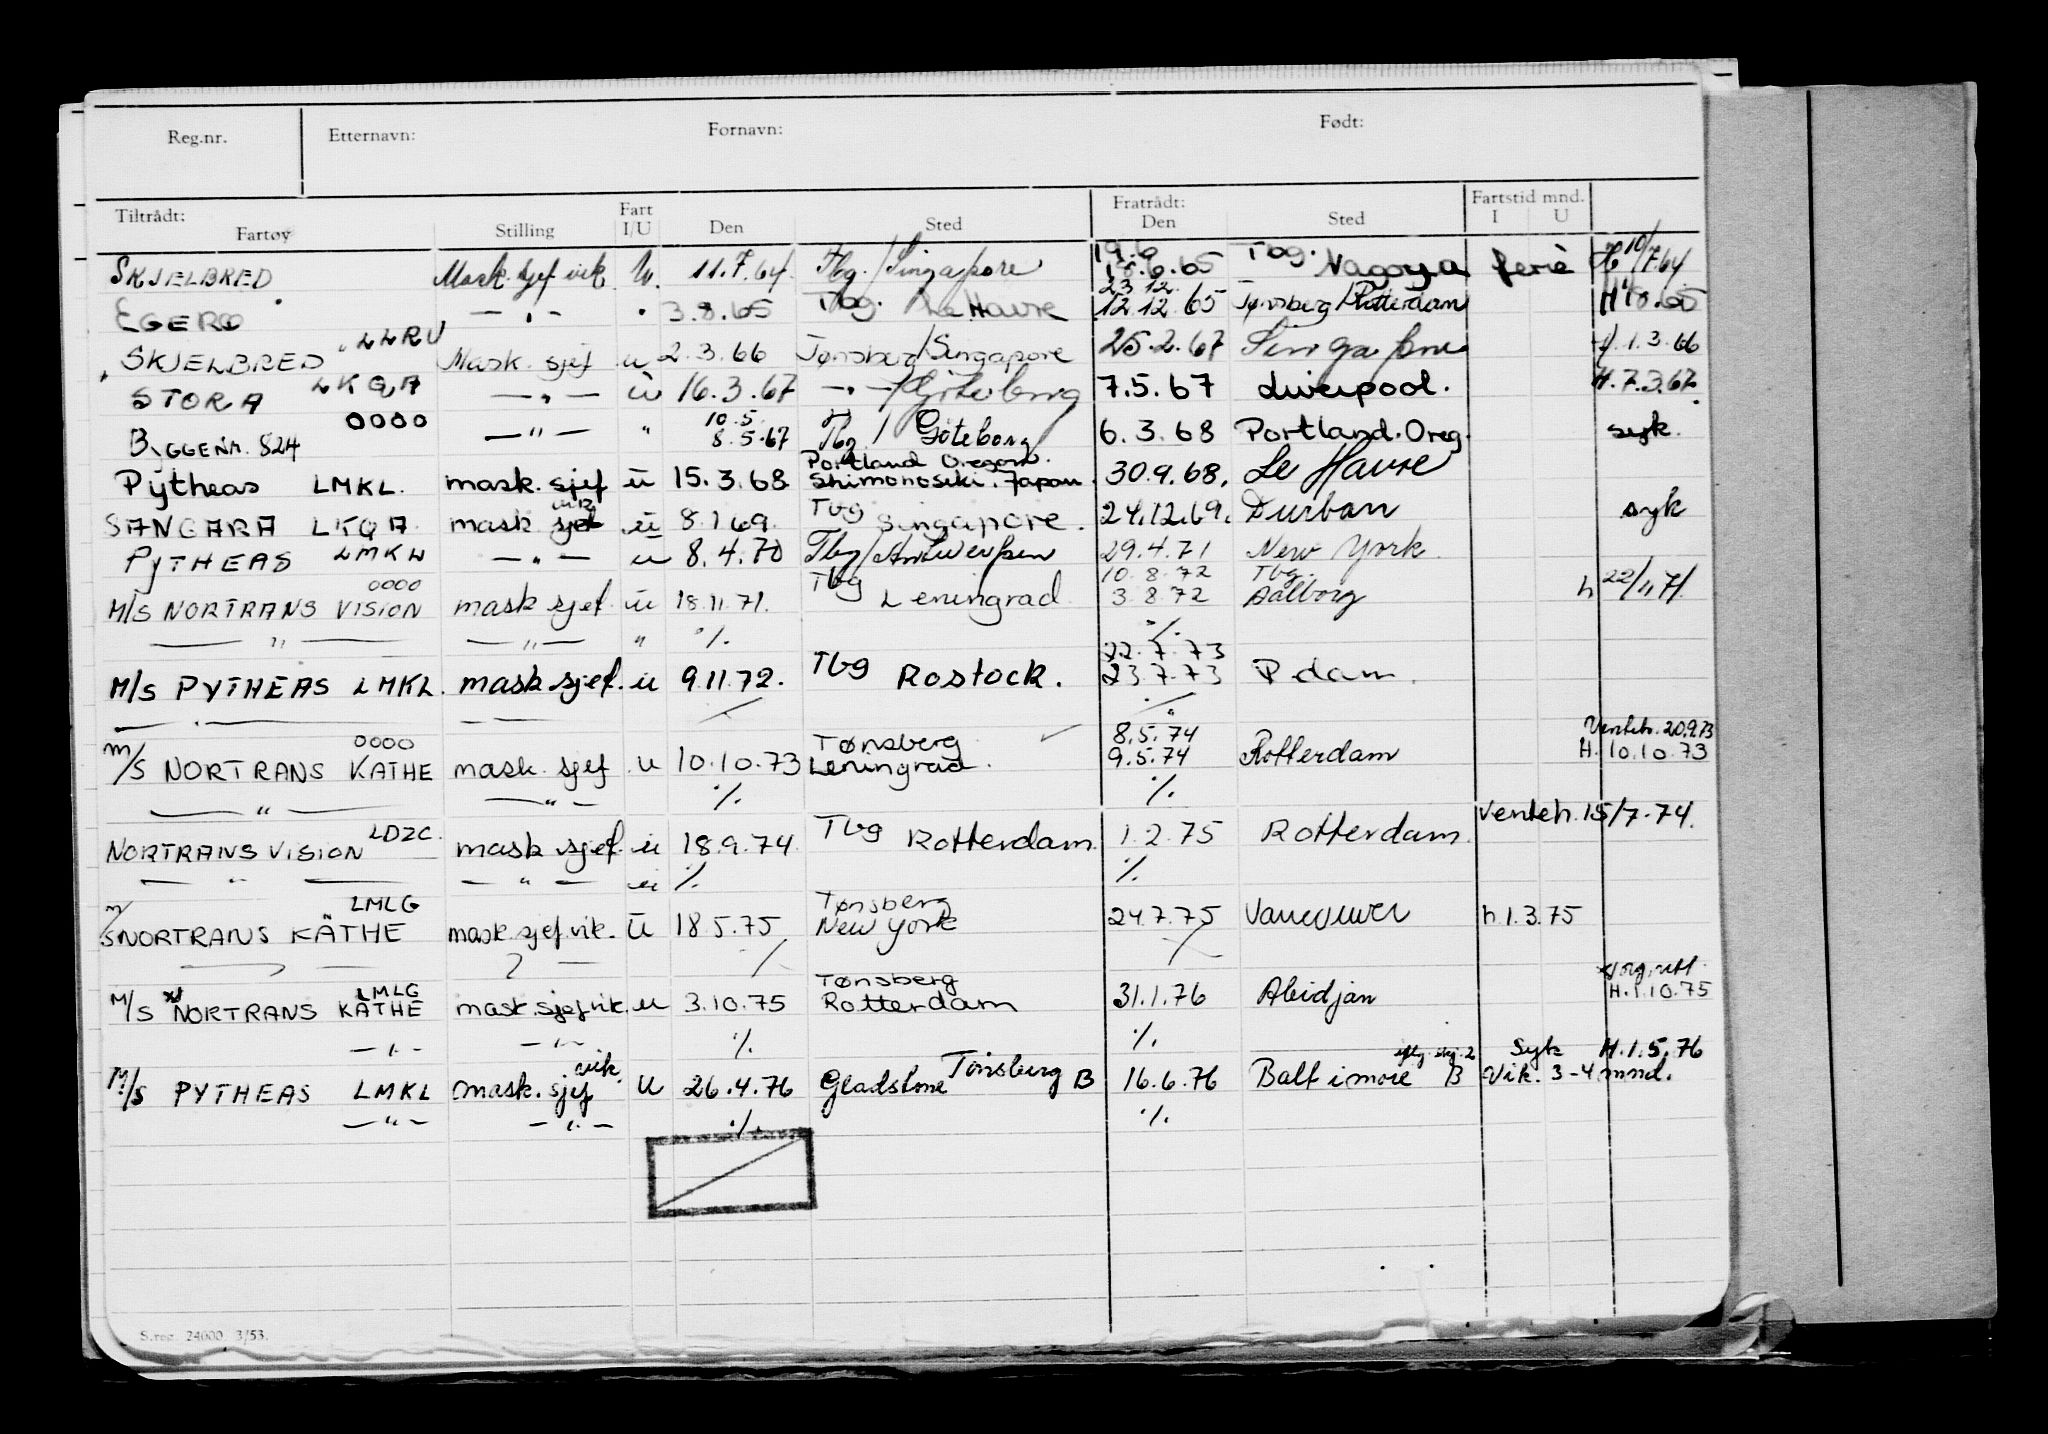 Reg.nr. Etternavn: Fornavn: Født:
Tiltrådt: Fratrådt: Fartstid mnd.
Fartøy Stilling Fart I/U Den Sted Den Sted I U
SKJELBRED Mask. sjef vik. U. 11.7.64. Tbg./Singapore 19.6 18.6.65 Tbg. Nagoya ferie H 10/7.64
EGERO — " — " 3.8.65 Tbg. Le Havre 23.12. 12.12.65 Tønsberg/Rotterdam
SKJELBRED LLRU Mask. sjef u 2.3.66 Tønsberg/Singapore 25.2.67 Singapore H. 1.3.66
STORA LKQA — " — ü 16.3.67 — " —/Göteborg 7.5.67 Liverpool. H. 7.3.67.
BYGGENR. 824 0000 — " — " 10.5. 8.5.67 Tbg / Göteborg 6.3.68 Portland. Oreg. syk.
Pytheas LMKL. mask. sjef ü 15.3.68 Portland Oregon. Shimonoseki. Japan. 30.9.68. Le Havre
SANGARA LKQA. mask sjef vik ü 8.1.69. Tbg Singapore. 24.12.69. Durban syk
PYTHEAS LMKL — " — ü 8.4.70 Tbg/Antwerpen 29.4.71 New York.
M/S NORTRANS VISION 0000 mask sjef. ü 18.11.71. Tbg Leningrad 10.8.72 3.8.72 Tbg. Aalborg h 22/11 71.
— " — — " — " ./. ./.
M/S PYTHEAS LMKL. mask sjef. ü 9.11.72. Tbg Rostock. 22.7.73 23.7.73 P dam.
— " — — — ./. ./.
M/S NORTRANS KATHE 0000 mask. sjef. u 10.10.73 Tønsberg Leningrad. 8.5.74 9.5.74 Rotterdam Venteh. 20.9.73 H. 10.10.73
— " — — " — ./. ./.
Venteh. 15/7.74.
NORTRANS VISION LDZC. mask sjef. ü 18.9.74 Tbg Rotterdam. 1.2.75 Rotterdam.
— " — — " — ü ./. ./.
M/S NORTRANS KÄTHE LMLG mask. sjef. vik. U 18.5.75 Tønsberg New York 24.7.75 Vancouver h. 1.3.75
./. ./.
M/S NORTRANS KATHE LMLG mask. sjef vik. u 3.10.75 Tønsberg Rotterdam 31.1.76 Abidjan H. 1.10.75
— " — — " — ./. ./.
M/S PYTHEAS LMKL mask. sjef vik. U 26.4.76 Gladstone Tønsberg B 16.6.76 Baltimore B Syk H. 1.5.76 Vik. 3-4 mnd.
— " — — " — ./. ./.
S.reg. 24000 3/53.